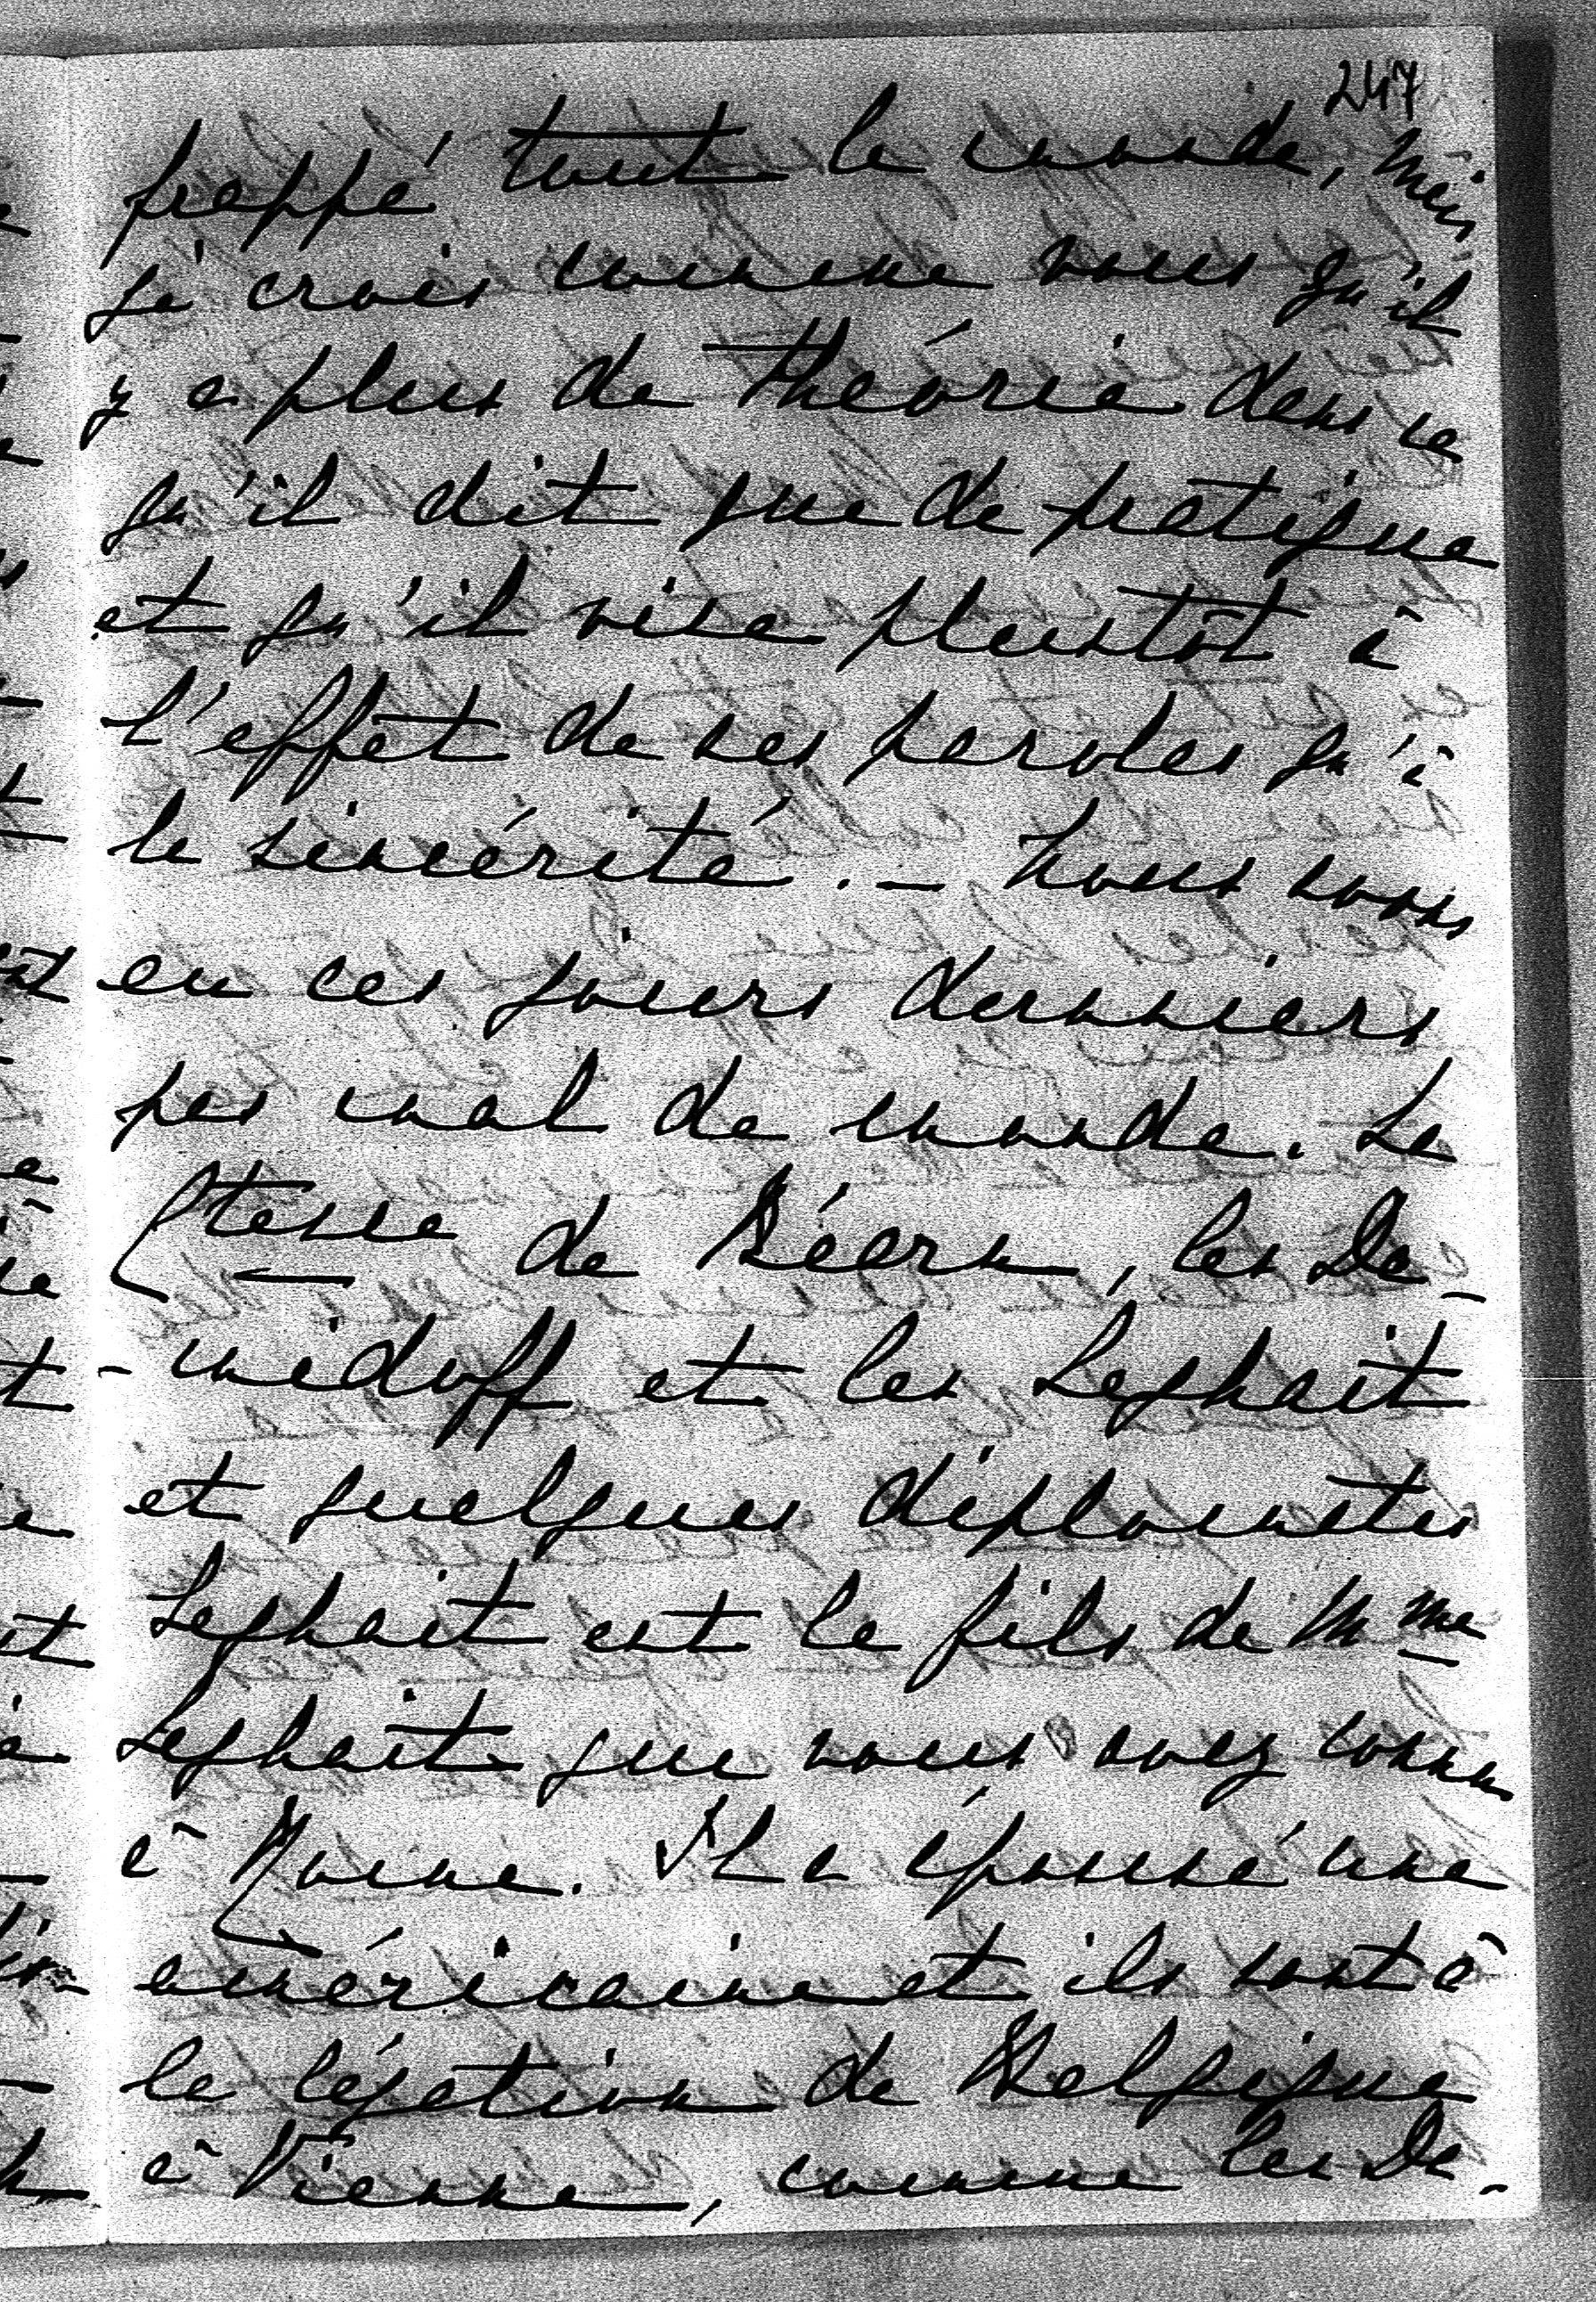 247
frappé tout le monde, mais
je crois comme vous qu'il
y a plus de théorie dans ce
qu'il dit que de pratique
et qu'il vise plustôt à
l'effet de ses paroles qu'à
la sincérité. – Nous avons
eu ces jours derniers
pas mal de monde. La
Ctesse de Béarn, les De-
-midoff et les Leghait
et quelques diplomates
Leghait est le fils de Mme
Leghait que vous avez connu
à Rome. Il a épousé une
américaine et ils sont à
la légation de Belgique
à Vienne, comme les De-